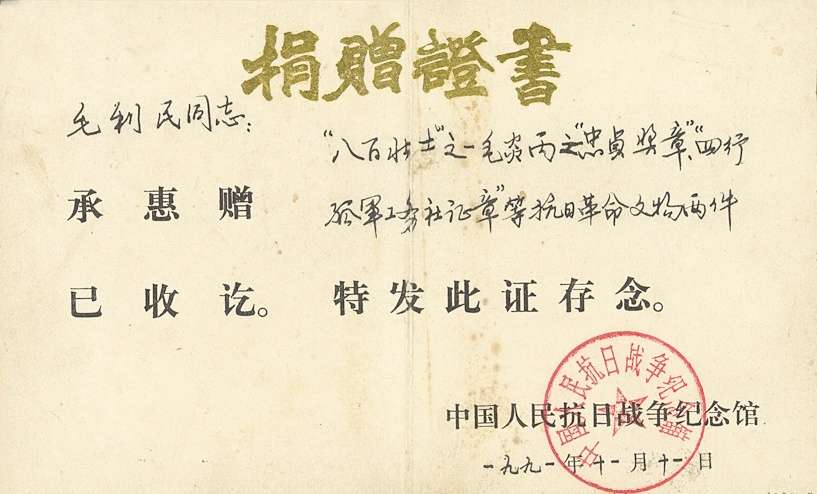 捐赠證書
毛利民同志：
"八百壮士"之一毛炎丙之"忠贞奖章"、"四行
承惠赠 孤军工务社证章"等抗日革命文物两件
已收讫。特发此证存念。
中国人民抗日战争纪念馆
一九九一年十一月十一日
中国人民抗日战争纪念馆